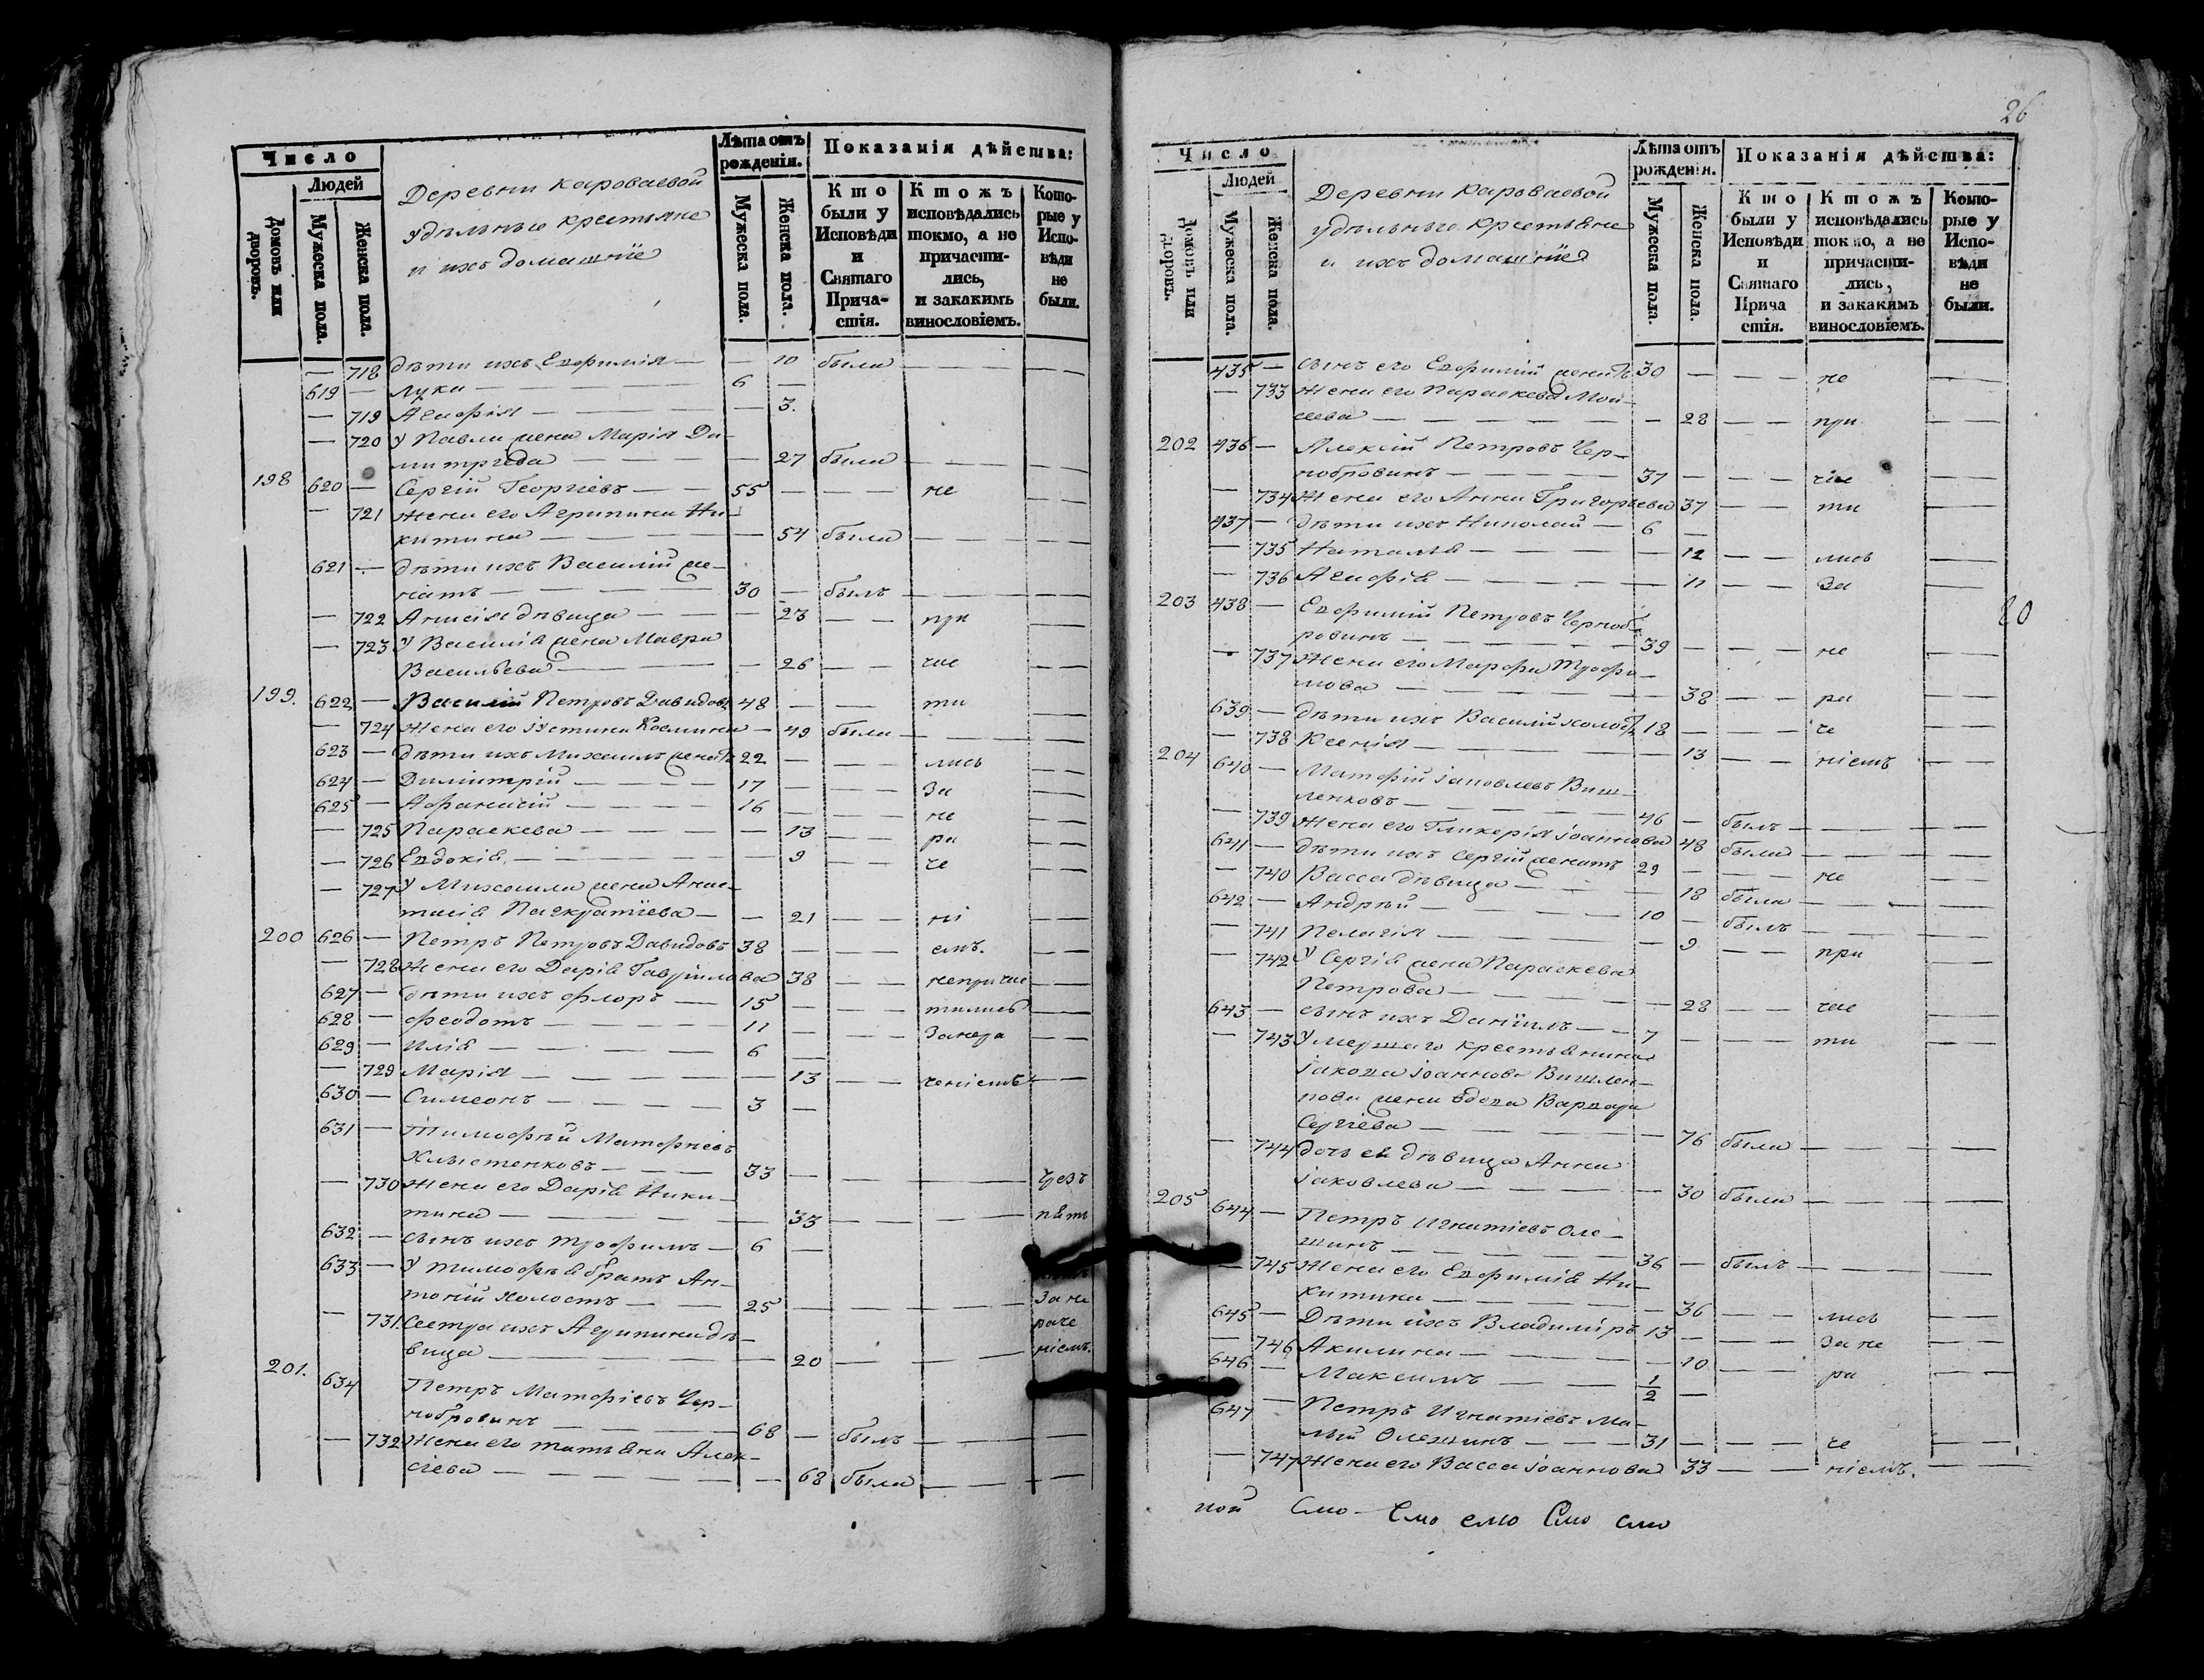 Число
Людей
Домовъ или дворовъ.
Мужеска пола.
Женска пола.
Деревни Короваевой
удѣльные крестьяне
и ихъ домашніе
Лѣта отъ рожденія.
Мужеска пола.
Женска пола.
Показанія дѣйства:
Кто были у Исповѣди и Святаго Причастія.
Ктожъ исповѣдались токмо, а не причастились, и закакимъ винословіемъ.
Которые у Исповѣди не были.
— 718 дѣти ихъ Евфимія — — 10 была — — — —
619 — Лука — 6 —
— 719 Агафія — — 3.
— 720 У Павла жена Марія Ди-
митріева — — 27 была — — — —
198 620 — Сергій Георгіевъ — 55 — — — не — —
— 721 жена его Агрипина Ни-
китина — — 54 была — — — —
621 — дѣти ихъ Василій же-
натъ — 30 — былъ — — — —
— 722 Анисія дѣвица — — 23 — — при — —
— 723 У Василія жена Мавра
Васильева — — 26 — — час — —
199. 622 — Василій Петровъ Давидовъ 48 — — — ти — —
— 724 Жена его Іустина Косьмина — 49 была — — — —
623 — дѣти ихъ Михаилъ женатъ 22 — — — лись — —
624 — Димитрій — 17 — — — За — —
625 — Афанасій — 16 — — — не — —
— 725 Параскева — — 13 — — ра — —
— 726 Евдокія — — 9 — — че — —
— 727 У Михаила жена Анас-
тасія Панкратіева — — 21 — — ні — —
200 626 — Петръ Петровъ Давидовъ 38 — — — емъ. — —
— 728 жена его Дарія Гавріилова 38 — — непричас — —
627 — дѣти ихъ Флоръ — 15 — — — тились — —
628 — Феодотъ — 11 — — — Занера — —
629 — Илія — 6 —
— 729 Марія — — 13 — — ченіемъ — —
630 — Симеонъ — 3 —
631 — Тимофѣй Матфіевъ
Хлыстенковъ — 33 — — — — Чрезъ
— 730 Жена его Дарія Ники-
тина — — 33 — — — пять
632 — сынъ ихъ Трофимъ — 6 —
633 — У Тимофѣя братъ Ан-
тоній холостъ — 25 — — — — За не
— 731. Сестра ихъ Агрипина дѣ- раче
вица — — 20 — — — ніемъ.
201. 634 Петръ Матфіевъ Чер-
нобровинъ — 68 — былъ — — — —
— 732 Жена его Татьяна Алек-
сіева — — 68 была — — — —
26
Число
Людей
Домовъ или дворовъ.
Мужеска пола.
Женска пола.
Деревни Короваевой
удѣльные крестьяне
и ихъ домашніе
Лѣта отъ рожденія.
Мужеска пола.
Женска пола.
Показанія дѣйства:
Кто были у Исповѣди и Святаго Причастія.
Ктожъ исповѣдались токмо, а не причастились, и закакимъ винословіемъ.
Которые у Исповѣди не были.
435 — сынъ его Евфимій женатъ 30 — — — не —
— 733 Жена его Параскева Мои-
сеева — — 28 — — при —
202 436 — Алексій Петровъ Чер-
нобровинъ — 37 — — — час —
— 734 Жена его Анна Григорьева 37 — — ти —
437 — дѣти ихъ Николай — 6 —
— 735 Наталья — — 12 — — лись —
— 736 Агафія — — 11 — — За —
203 438 — Евфимій Петровъ Чернобъ-
ровинъ — 39 — — — не —
20
— 737 Жена его Марфа Трофи-
мова — — 38 — — ра —
639 — дѣти ихъ Василій холостъ 18 — — — че —
— 738 Ксенія — — 13 — — ніемъ —
204 640 — Матфій Іаковлевъ Виш-
ленковъ — 46 — былъ — — —
— 739 Жена его Гликерія Іоаннова 48 была — — —
641 — дѣти ихъ Сергій женатъ 29 — — — не —
— 740 Васса дѣвица — — 18 была — — —
642 — Андрѣй — 10 — былъ — — —
— 741 Пелагія — — 9 — — при —
— 742 У Сергія жена Параскева
Петрова — — 28 — — час —
643 — сынъ ихъ Даніилъ — 7 — — — ти —
— 743 Умершаго крестьянина
Іакова Іоаннова Вишлен-
кова жена вдова Варвара
Сергіева — — 76 была — — —
— 744 дочь ея дѣвица Анна
Іаковлева — — 30 была — — —
205 644 — Петръ Игнатіевъ Оле-
шинъ — 36 — былъ — — —
— 745 Жена его Евфимія Ни-
китина — — 36 — — лись —
645 — Дѣти ихъ Владиміръ 13 — — — За не —
— 746 Акилина — — 10 — — ра —
646 — Максимъ — 1/2 —
647 — Петръ Игнатіевъ Ма-
лый Олешинъ — 31 — — — че —
— 747 Жена его Васса Іоаннова 33 — — ніемъ. —
ной Смо- Смо смо Смо смо